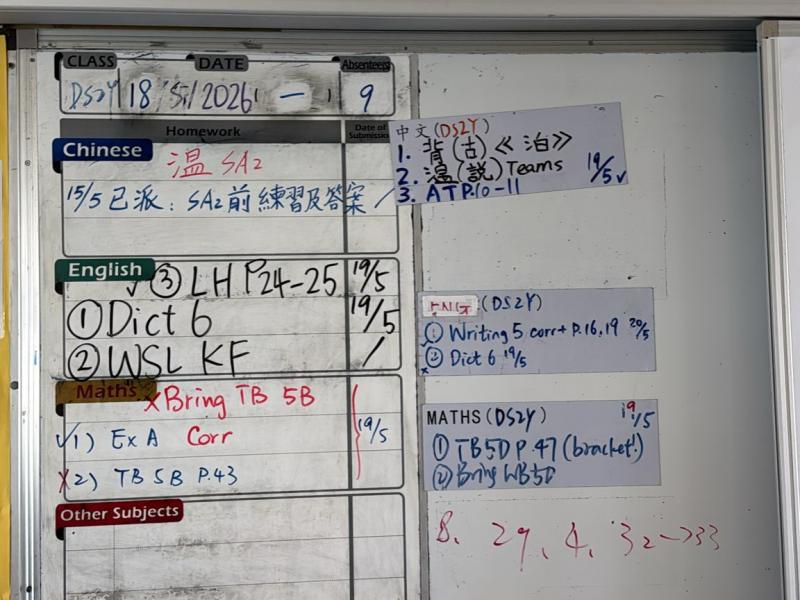 CLASS DATE Absentees
DS2Y 18/5/2026 一 9
Homework Date of Submission
Chinese
温 SA2
15/5 已派：SA2前練習及答案 /
English
✓ ③ LH P24-25 19/5
① Dict 6 19/5
② WSL KF /
Maths
×Bring TB 5B
✓1) Ex A Corr 19/5
×2) TB 5B P.43
Other Subjects
中文(DS2Y)
1. 背(古)《泊》
2. 温(説)Teams 19/5 ✓
3. ATP.10-11
ENG (DS2Y)
① Writing 5 corr+ P.16,19 20/5
② Dict 6 19/5
MATHS (DS2Y) 19/5
① TB5D P.47 (bracket!)
② Bring WB5D
8、29、4、32→33